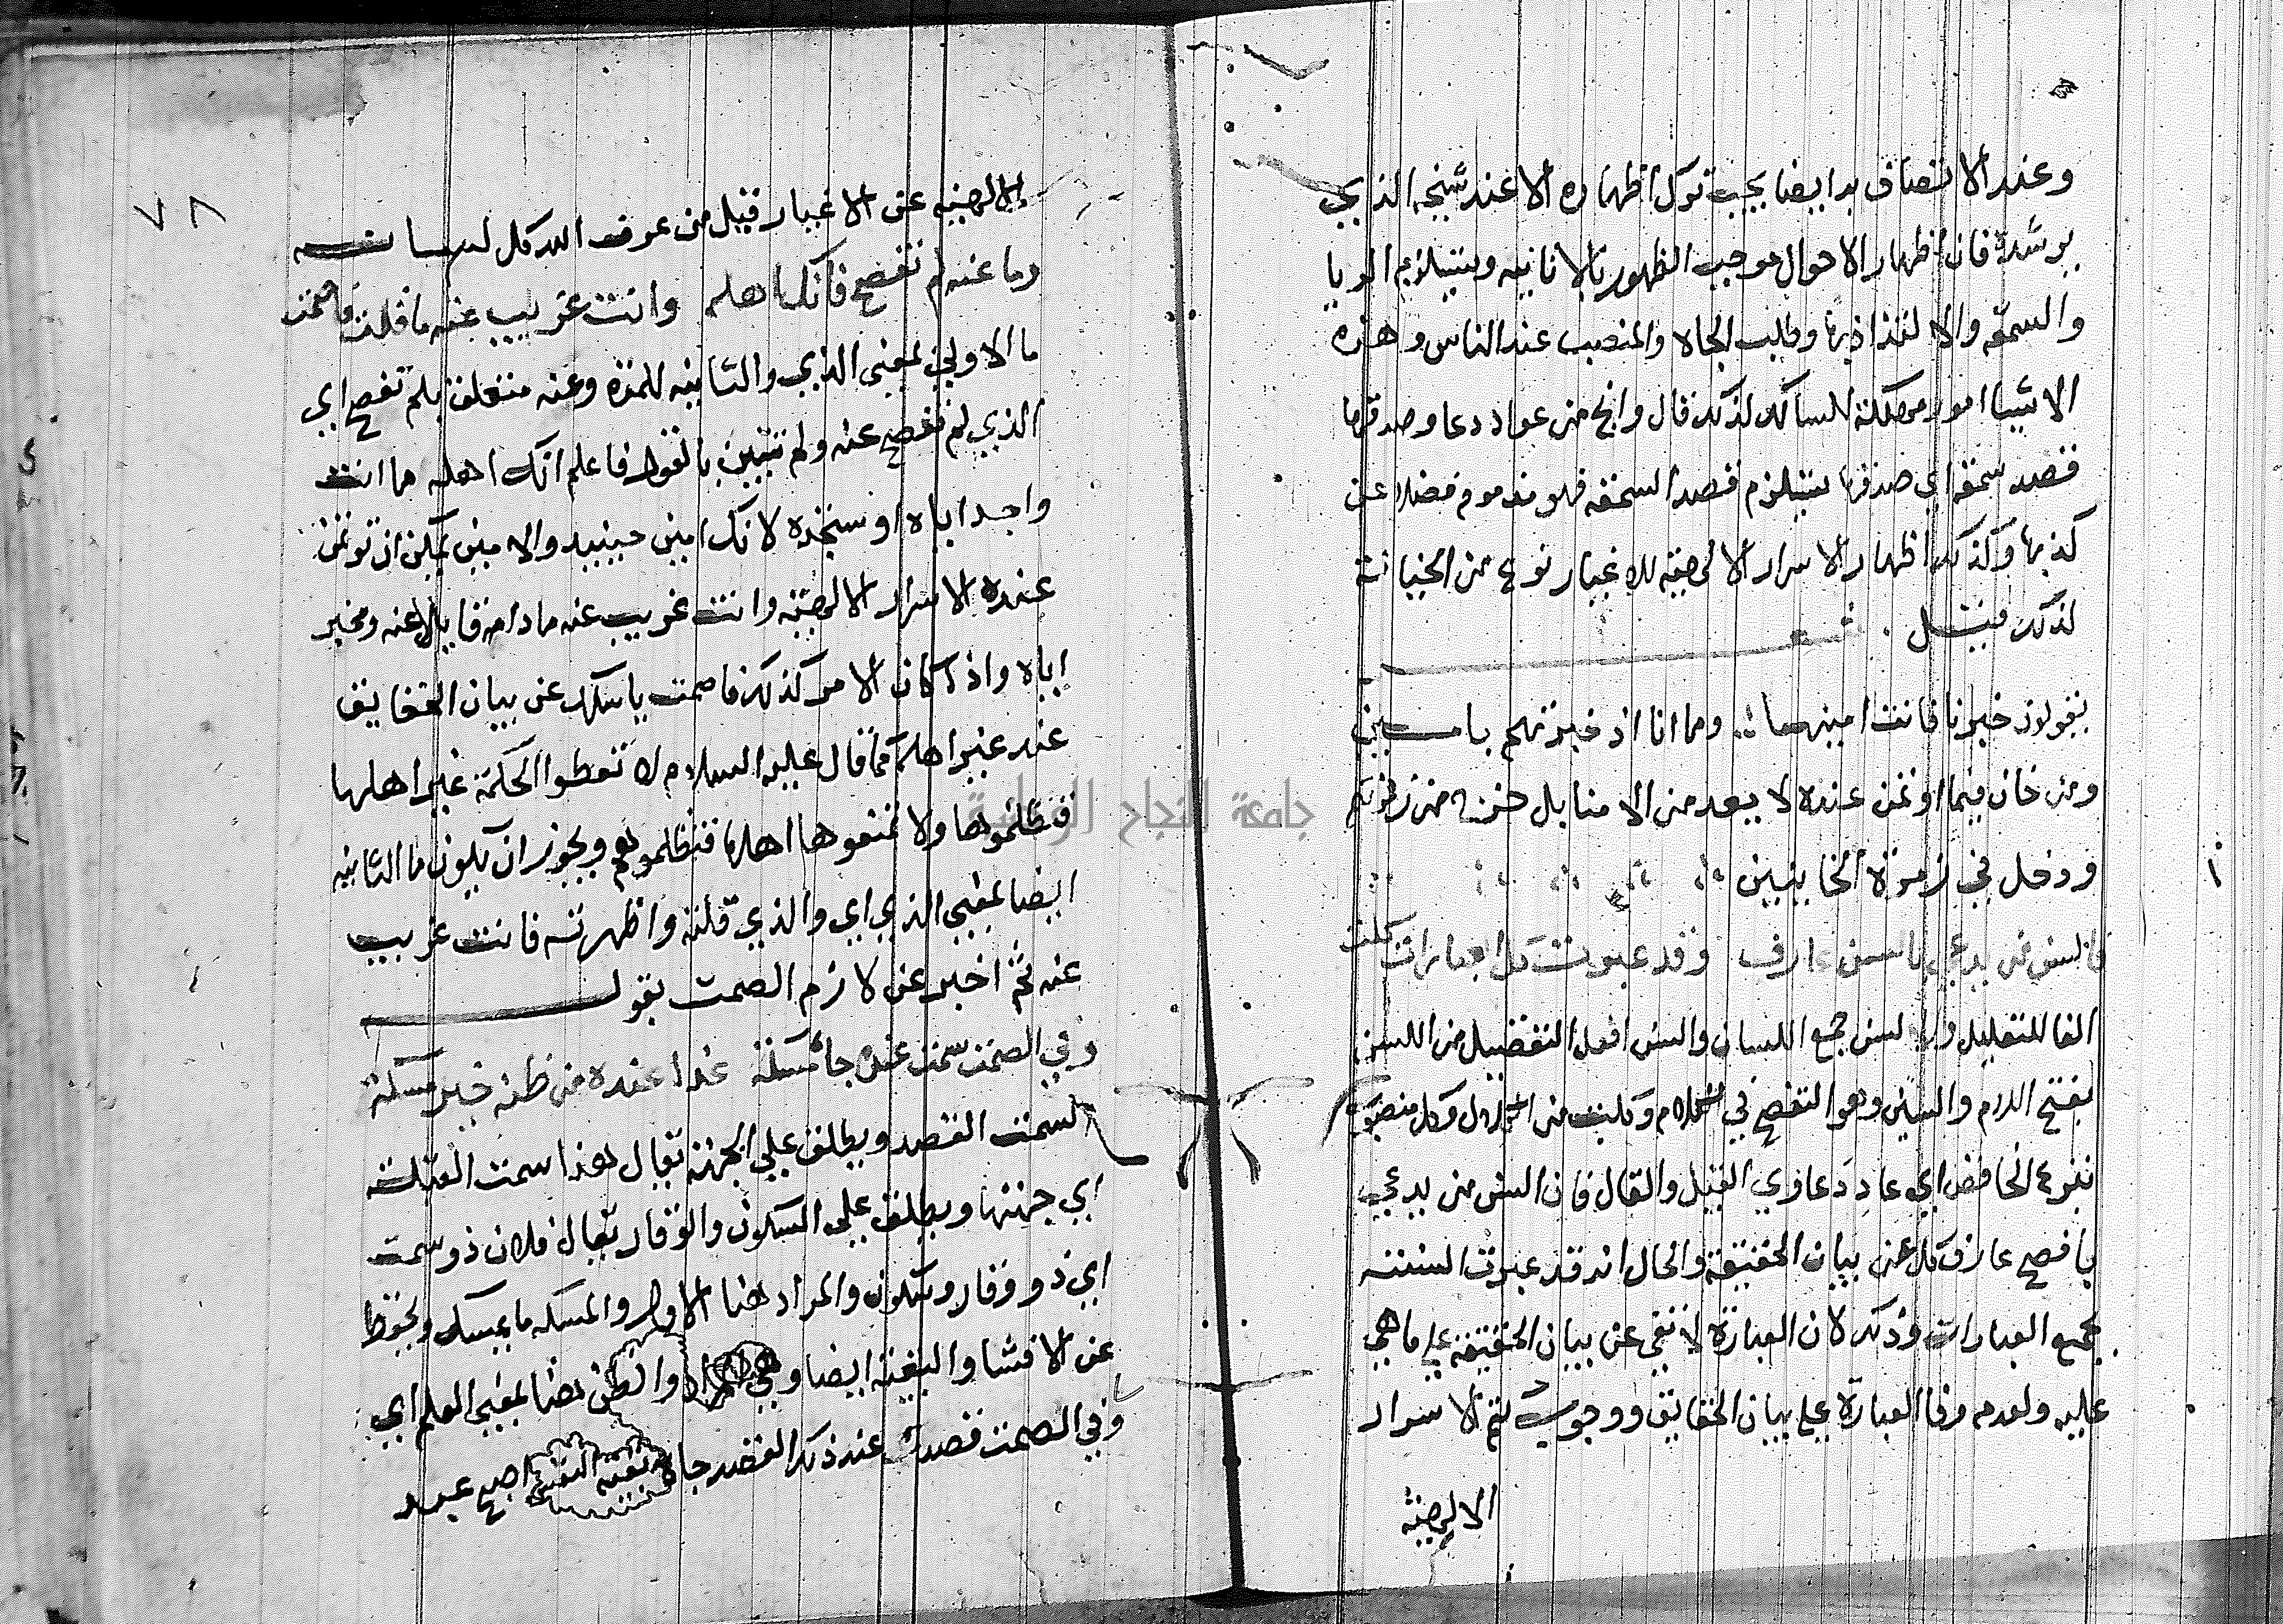 وعند الاتصاف به ايضا يجب ترك اظهاره الا عند شيخه الذي
يرشده فان اظهار الاحوال موجب الظهور بالانانيه ويستلزم الريا
والسمعه والالتذاذ بها وطلب الجاه والمنصب عند الناس وهذه
الاشيا امور مهلكة للسالك لذلك قال وانح من عواد دعاو صدقها
قصد سمعة اي صدقها يستلزم قصد السمعه فهو مذموم فضلا عن
كذبها وكذلك اظهار الاسرار الالهيه للاغيار نوع من الخيانة
لذلك قيل شعر
يقولون خبرنا فانت امينها وما انا ان خبرتهم بامين
ومن خان فيما اوتمن عنده لا يعد من الامنا بل خرج من زمرتهم
ودخل في زمرة الخاينين
فالسن من يدعي بالسن عارف وقد عبرت كل العبارات كلت
الفا للتعليل والالسن جمع اللسان والسن افعل التفضيل من اللسن
بفتح اللام والسين وهو التفصح في الكلام وكلت من الكلال وكل منصوب
بنزع الخافض اي عاد دعاوي القيل والقال فان السن من يدعي
بافصح عارف كل عن بيان الحقيقة والحال انه قد عبرت السنته
بجميع العبارات وذلك لان العبارة لا تفي عن بيان الحقيقة علي ما هي
عليه ولعدم وفا العبارة علي بيان الحقايق ووجوب كتم الاسرار
الالهية
٧٨
الالهيه عن الاغيار قيل من عرف الله كل لسانه
وما عنه لم تفصح فانك اهله وانت غريب عنه ما قلت فاصمت
ما الاولي بمعني الذي والثانيه للمدة وعنه متعلق بلم تفصح اي
الذي لم تفصح عنه ولم تتبين بالقول فاعلم انك اهله ما انت
واجد اياه او ستجده لانك امين حينيد والامين يمكن ان توتمن
عنده الاسرار الالهية وانت غريب عنه ما دام قايلا عنه ومخبر
اياه واذا كان الامر كذلك فاصمت ياسالك عن بيان الحقايق
عند غير اهله كما قال عليه السلام لا تعطوا الحكمة غير اهلها
فتظلموها ولا تمنعوها اهلها فتظلموهم ويجوز ان يكون ما الثانيه
ايضا بمعني الذي اي والذي قلته واظهرته فانت غريب
عنه ثم اخبر عن لازم الصمت بقوله
وفي الصمت سمت عنده جا مسكة غدا عبده من ظنه خير مسكة
السمت القصد ويطلق علي الجهة يقال هذا سمت القبلة
اي جهتها ويطلق علي السكون والوقار يقال فلان ذو سمت
اي ذو وقار وسكون والمراد هنا الاول والمسكه ما يمسك ويحفظ
عن الافشا والبغية ايضا وهي المراد والظن هنا بمعني العلم اي
وفي الصمت قصد عند ذلك القصد جاه اصبح عبد
جامعة النجاح الوطنية